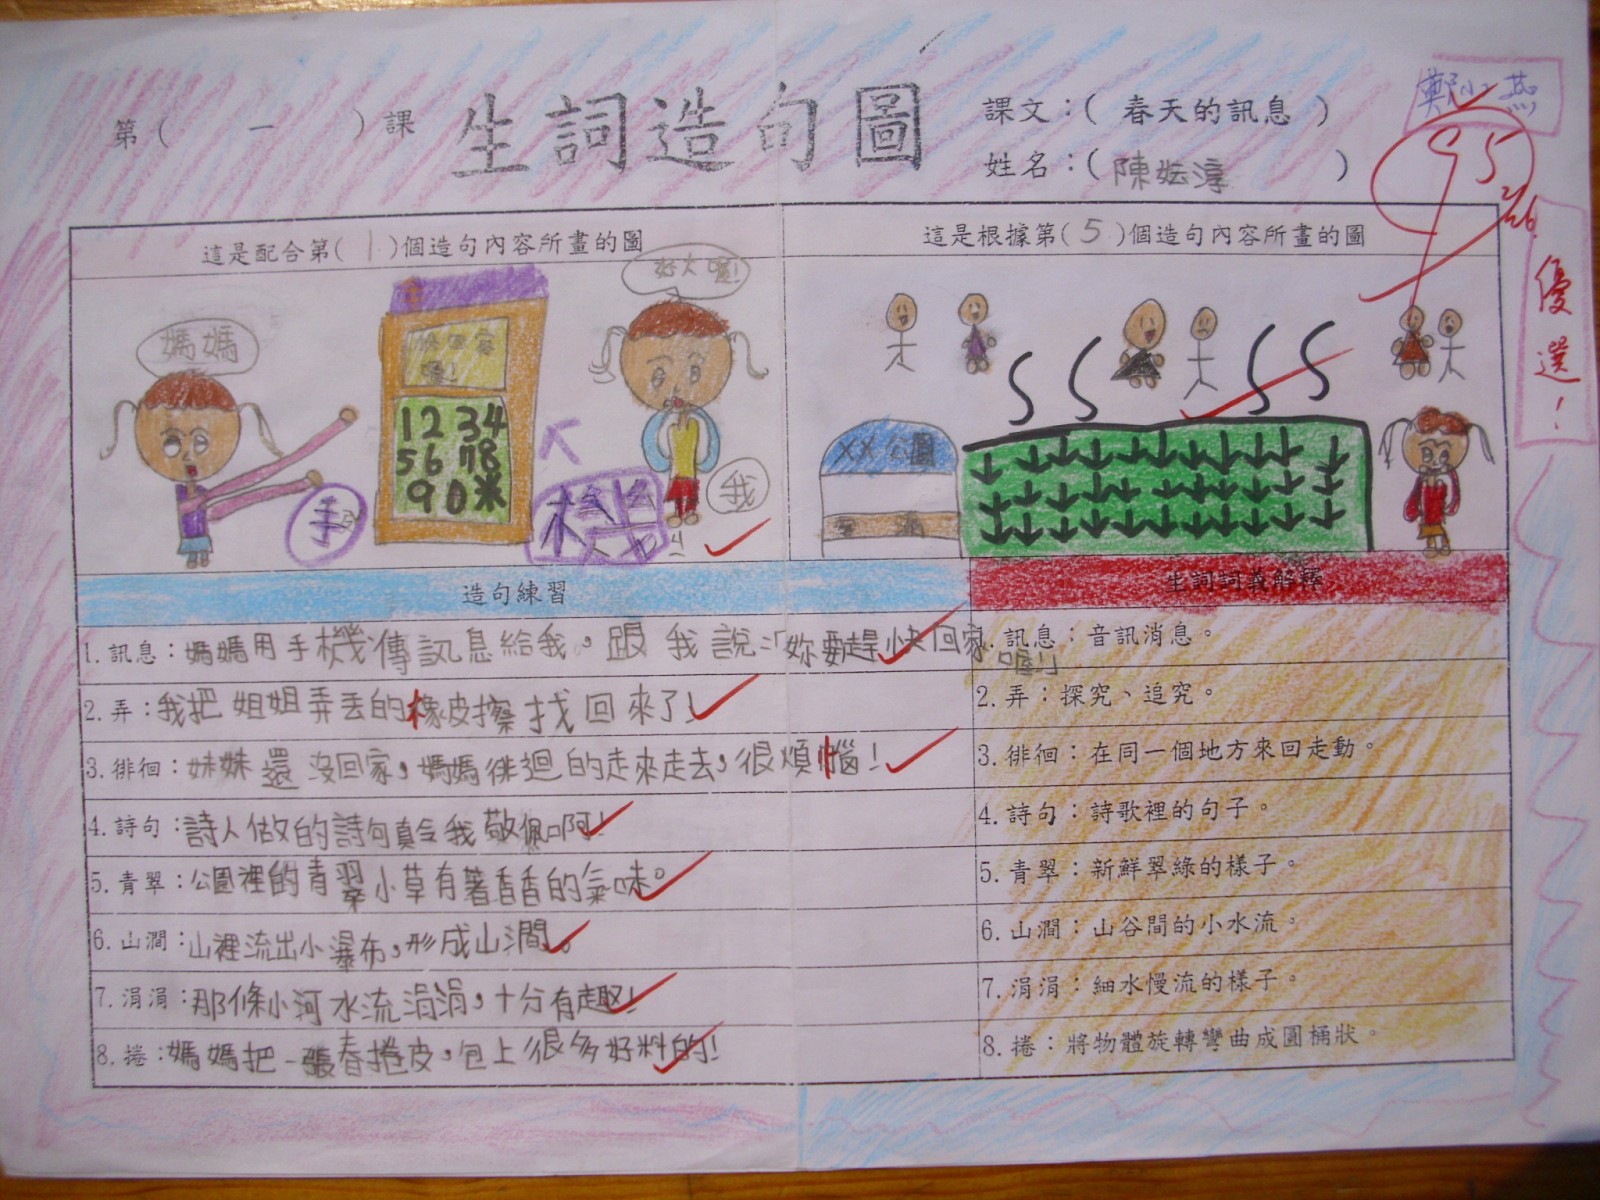 第( 一 )課 生詞造句圖 課文:( 春天的訊息 )
姓名:( 陳妶淳 )
95
優選!
這是配合第( 1 )個造句內容所畫的圖
這是根據第( 5 )個造句內容所畫的圖
媽媽
好大喔!
1234
5678
90米
手
機
我
XX公園
造句練習
生詞詞義解釋
1. 訊息:媽媽用手機傳訊息給我,跟我說:「妳要趕快回家喔!」
1. 訊息:音訊消息。
2. 弄:我把姐姐弄丟的橡皮擦找回來了!
2. 弄:探究、追究。
3. 徘徊:妹妹還沒回家,媽媽徘迴的走來走去,很煩惱!
3. 徘徊:在同一個地方來回走動。
4. 詩句:詩人做的詩句真令我敬佩啊!
4. 詩句:詩歌裡的句子。
5. 青翠:公園裡的青翠小草有著香香的氣味。
5. 青翠:新鮮翠綠的樣子。
6. 山澗:山裡流出小瀑布,形成山澗。
6. 山澗:山谷間的小水流。
7. 涓涓:那條小河水流涓涓,十分有趣!
7. 涓涓:細水慢流的樣子。
8. 捲:媽媽把一張春捲皮,包上很多好料的!
8. 捲:將物體旋轉彎曲成圓桶狀。